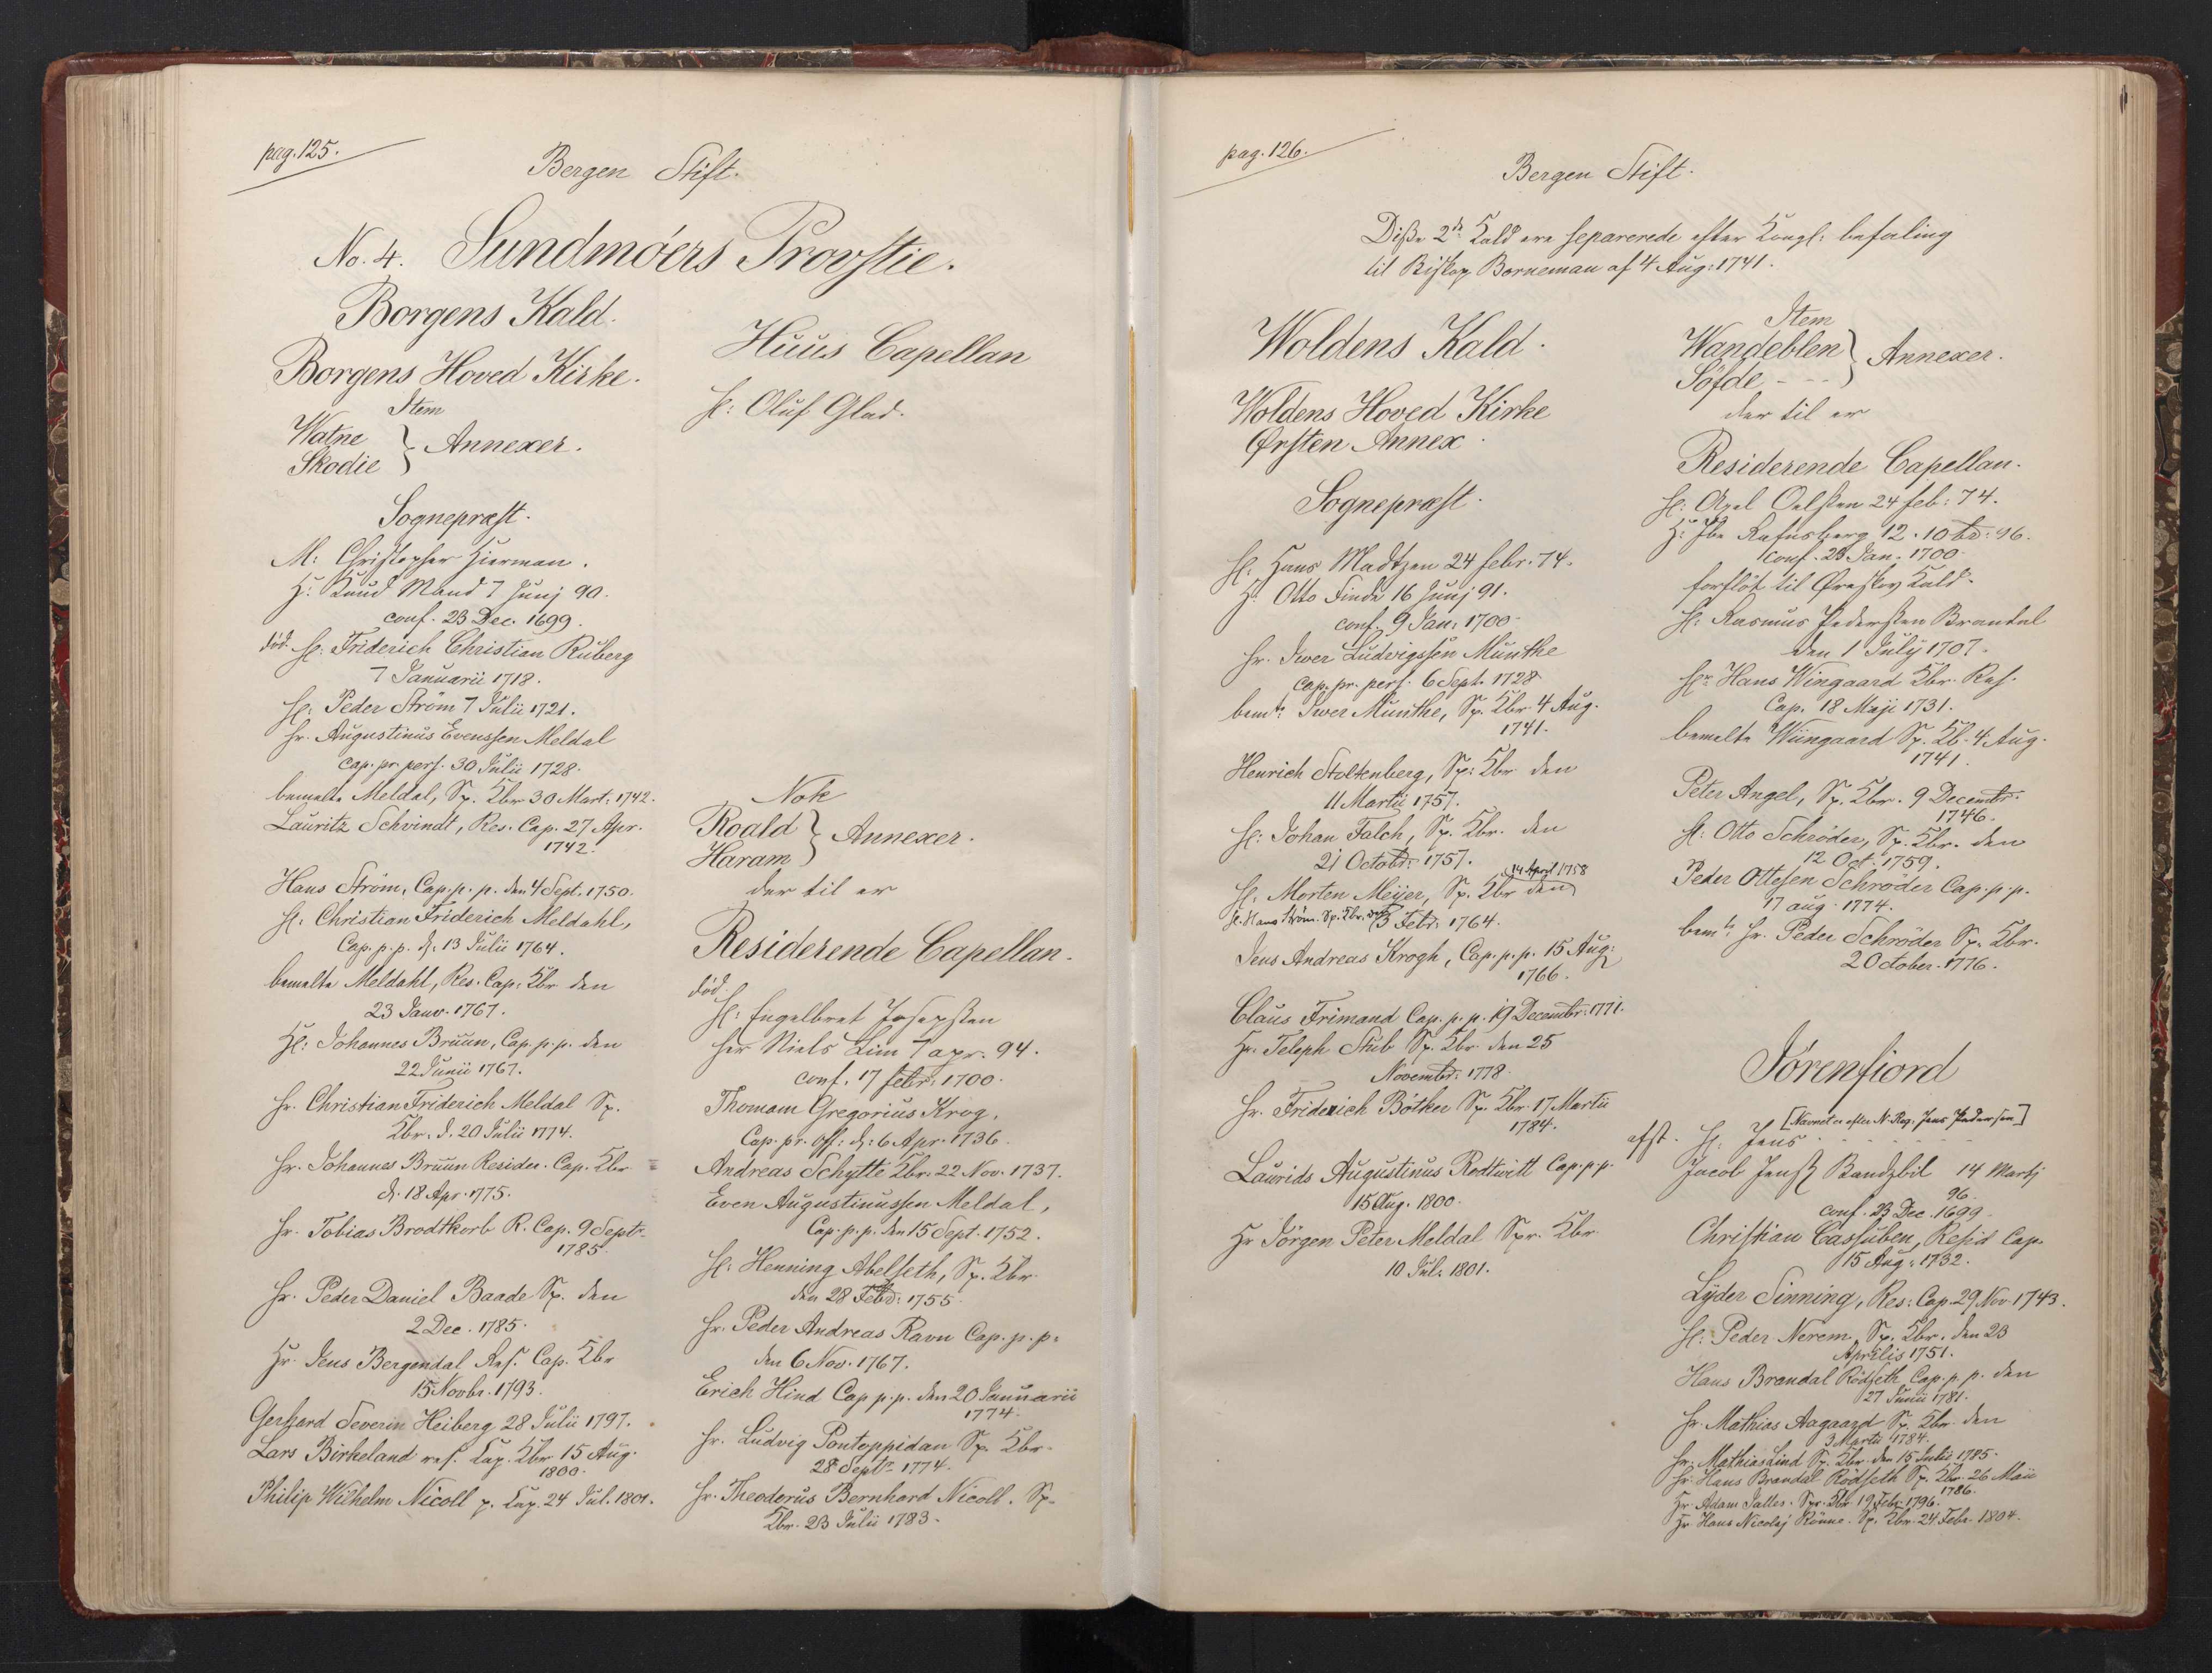 pag. 125.
Bergen Stift.
No. 4. Sundmöers Provstie.
Borgens Kald.
Borgens Hoved Kirke.
Item
Watne
Skodie } Annexer.
Sognepræst.
M: Christopher Hierman.
H: Knud Mand 7 Junj 90.
conf. 23 Dec. 1699.
död Hr: Friderich Christian Ruberg
7 Januarii 1718.
Hr: Peder Ström 7 Julii 1721.
Hr. Augustinus Evenssen Meldal
cap. pr. pers. 30 Julii 1728.
bemelte Meldal, Sp. Kbr 30 Mart: 1742.
Lauritz Schvindt, Res. Cap. 27 Apr.
1742.
Hans Ström, Cap. p. p. den 4 Sept. 1750.
Hr: Christian Friderich Meldahl,
Cap. p. p. d. 13 Julii 1764.
bemelte Meldahl, Res. Cap. Kbr den
23 Janv. 1767.
Hr: Johannes Bruun, Cap. p. p. den
22 Junii 1767.
Hr. Christian Friderich Meldal Sp.
Kbr. d. 20 Julii 1774.
Hr. Johannes Bruun Resider. Cap. Kbr
d. 18 Apr. 1775.
Hr. Tobias Brodtkorb R. Cap. 9 Septr.
1785.
Hr. Peder Daniel Baade Sp. den
2 Dec. 1785.
Hr. Jens Bergendal Res. Cap. Kbr
15 Novbr. 1793.
Gerhard Severin Heiberg 28 Julii 1797.
Lars Birkeland res. Cap. Kbr 15 Aug.
1800.
Philip Wilhelm Nicoll p. Cap. 24 Jul. 1801.
Huus Capellan
Hr: Oluf Glad.
Nok
Roald
Haram } Annexer.
der til er
Residerende Capellan.
död.
Hr: Engelbret Josepsen
Her Niels Lim 7 apr. 94.
conf. 17 febr. 1700.
Thomam Gregorius Krog,
Cap. pr. off: d: 6 Apr. 1736.
Andreas Schytte Kbr. 22 Nov. 1737.
Even Augustinussen Meldal,
Cap. p. p. den 15 Sept. 1752.
Hr: Henning Abelseth, Sp. Kbr.
den 28 Febr: 1755.
Hr. Peder Andreas Ravn Cap. p. p.
den 6 Nov. 1767.
Erich Hind Cap p. p. den 20 Januarii
1774.
Hr. Ludvig Pontoppidan Sp. Kbr.
28 Septr. 1774.
Hr. Theodorus Bernhard Nicoll. Sp.
Kbr. 23 Julii 1783.
pag. 126.
Bergen Stift.
Disse 2de Kald ere separerede efter Kongl: befaling
til Biskop Borneman af 4 Aug: 1741.
Woldens Kald.
Woldens Hoved Kirke
Ørsten Annex.
Sognepræst.
Hr: Hans Madtzen 24 febr. 74.
H: Otto Finde 16 Junj 91.
conf. 9 Jan: 1700.
Hr. Iwer Ludvigssen Munthe
cap. pr. pers. 6 Sept. 1728
bemte Iwer Munthe, Sp. Kbr. 4 Aug.
1741.
Henrich Stoltenberg, Sp: Kbr den
11 Martii 1757.
Hr: Johan Falch, Sp. Kbr. den
21 Octobr. 1757.
Hr. Morten Meijer, Sp. Kbr den 14 April 1758
Hr. Hans Ström. Sp. Kbr. den 3 Febr: 1764.
Jens Andreas Krogh, Cap. p. p. 15 Aug:
1766.
Claus Frimand Cap. p. p. 19 Decembr: 1771.
Hr. Teleph Stub Sp. Kbr. den 25
Novembr: 1778.
Hr. Friderich Bötker Sp. Kbr. 17 Martii
1784.
Laurids Augustinus Rodtwitt Cap. p. p.
15 Aug. 1800.
Hr Jörgen Peter Meldal Spr. Kbr.
10 Jul. 1801.
Item
Wandeblen
Söfde - - - } Annexer.
der til er
Residerende Capellan.
Hr: Axel Oelsen 24 feb: 74.
H: Ibe Rafnsberg 12. 10br: 96.
conf. 23 Jan. 1700.
forflöt til Kald.
Hr: Rasmus Pedersen Brandal
den 1 Julij 1707.
Hr. Hans Wingaard Kbr. Res.
Cap. 18 Maji 1731.
bemelte Wiingaard Sp. Kb. 4 Aug.
1741.
Peter Angel, Sp. Kbr. 9 Decembr.
1746.
Hr: Otto Schröder, Sp. Kbr. den
12 Oct. 1759.
Peder Ottesen Schröder Cap. p. p.
17 aug. 1774.
bemte Hr. Peder Schröder Sp. Kbr.
2 October. 1776.
Jörenfiord
[Navnet er efter N. Reg. Jens Pedersen]
afst. Hr: Jens - - - - - -
Jacob Jenss Bandsbil 14 Martj
96.
conf. 23 Dec. 1699.
Christian Cassuben, Resid Cap.
15 Aug. 1732.
Lyder Sinning, Res: Cap. 29 Nov. 1743.
Hr: Peder Nerem, Sp. Kbr. den 23
Aprilis 1751.
Hans Brandal Rödseth Cap. p. p. den
27 Junii 1781.
Hr. Mathias Aagaard Sp. Kbr. den
3 Martii 1784.
Hr. Mathias Lind Sp. Kbr. den 15 Julii 1785.
Hr. Hans Brandal Rödseth Sp. Kbr. 26 Maii
1786.
Hr. Adam Salles. Spr. Kbr 19 Febr: 1796.
Hr Hans Nicolaj Rönne. Sp. Kbr. 24 Febr. 1804.